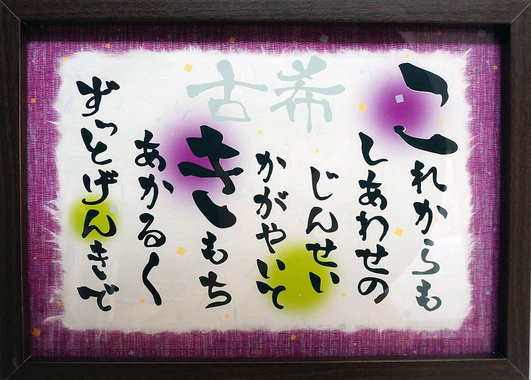 古希
これからも
しあわせの
じんせい
かがやいて
きもち
あかるく
ずっとげんきで